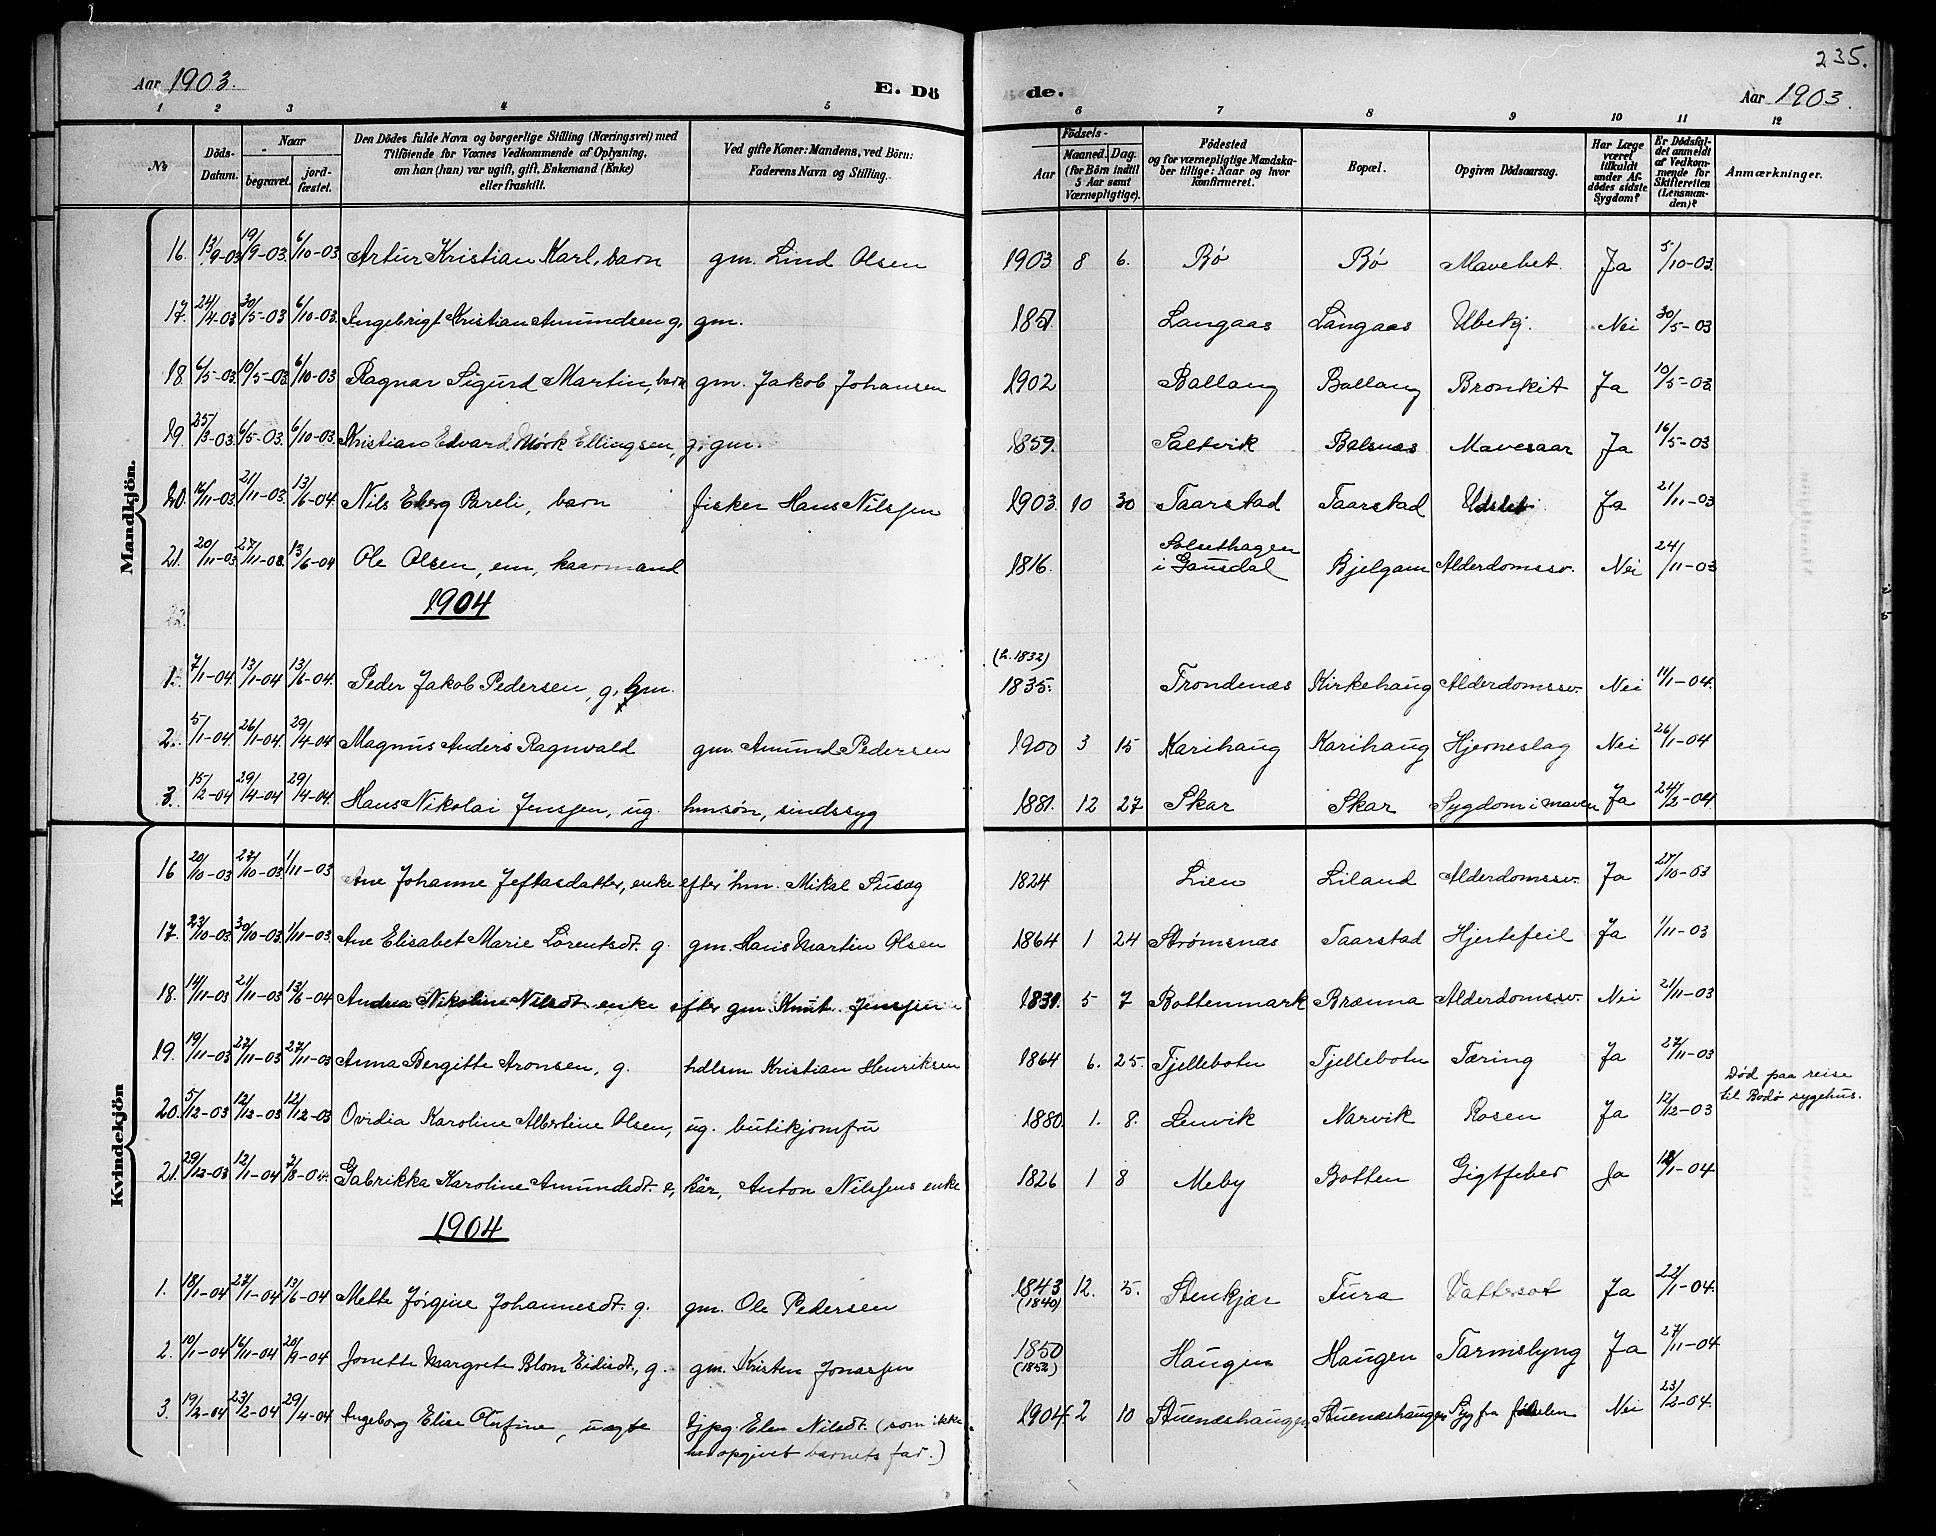 235.
Aar 1903. E. Dö de. Aar 1903.
1 2 3 4 5 6 7 8 9 10 11 12
№ Döds-Datum. Naar begravet. jord-fæstet. Den Dödes fulde Navn og borgerlige Stilling (Næringsvei) med Tilföiende for Voxnes Vedkommende af Oplysning, om han (hun) var ugift, gift, Enkemand (Enke) eller fraskilt. Ved gifte Koner: Mandens, ved Börn: Faderens Navn og Stilling. Födsels- Aar Maaned. Dag. (for Börn indtil 5 Aar samt Værnepligtige). Födested og for værnepligtige Mandska-ber tillige: Naar og hvor konfirmeret. Bopæl. Opgiven Dödsaarsag. Har Læge været tilkaldt under Af-dödes sidste Sygdom? Er Dödsfal-det anmeldt af Vedkom-mende for Skifteretten (Lensman-den)? Anmærkninger.
Mandkjön.
16. 13/9-03 19/9-03. 6/10-03 Artur Kristian Karl, barn gm. Lind Olsen 1903 8 6. Bø Bø Mavebet. Ja 5/10-03.
17. 24/4-03 30/5-03 6/10-03. Ingebrigt Kristian Amundsen g. gm. 1851. Langaas Langaas Ubekj. Nei 30/5-03
18. 6/5-03. 10/5-03. 6/10-03 Ragnar Sigurd Martin, barn gm. Jakob Johansen 1902 Ballang Ballang Bronkit Ja 10/5-03
19. 25/3-03. 6/5-03. 6/10-03. Kristian Edvard Mörk Ellingsen, g. gm. 1859. Saltvik Balsnes Mavesaar Ja 16/5-03
20. 16/11-03. 21/11-03. 13/6-04. Nils Eberg Pareli, barn fisker Hans Nilssen 1903 10 30 Taarstad Taarstad Ja 21/11-03
21. 20/11-03 27/11-03. 13/6-04 Ole Olsen, em, kaarmand 1816. Solsethagen i Gausdal Bjelgam Alderdomssv. Nei 24/11-03
1904
1. 7/1-04. 13/1-04 13/6-04. Peder Jakob Pedersen, g, gm. (h. 1832) 1835. Trondenæs Kirkehaug Alderdomssv. Nei 11/1-04.
2. 5/1-04 26/1-04. 29/4-04 Magnus Anders Ragnvald gm. Amund Pedersen 1900 3 15 Karihaug Karihaug Hjerneslag Nei 26/1-04
3. 15/2-04 29/4-04 29/4-04. Hans Nikolai Jenssen, ug. hmsøn, sindssyg 1881. 12 27 Skar Skar Sygdom i maven Ja 24/2-04
Kvindekjön
16 20/10-03 27/10-03 1/11-03 Ane Johanne Jeftasdatter, enke efter hm. Mikal Susæg 1824 Lien Liland Alderdomssv. Ja 27/10-03
17. 23/10-03. 30/10-03. 1/11-03. Ane Elisabet Marie Lorentsdt. g. gm. Hans Martin Olsen 1864 1 24 Strømsnæs Taarstad Hjertefeil Ja 1/11-03
18. 14/11-03 21/11-03 13/6-04 Andrea Nikoline Nilsdt enke efter gm. Knut Jenssen 1831. 5 7 Bottenmark Brænna Alderdomssv. Nei 21/11-03
19. 19/11-03 27/11-03 27/11-03 Anna Bergitte Aronsen, g. hdlsm Kristian Henriksen 1864 6. 25. Tjellebotn Tjellebotn Tæring Ja 27/11-03
20. 5/12-03 12/12-03 12/12-03 Ovidia Karoline Albertine Olsen, ug. butikjomfru 1880. 1. 8. Lenvik Narvik Rosen Ja 12/12-03 Død paa reise til Bodø sygehus.
21. 29/12-03 12/1-04 Gabrikka Karoline Amundsdt. e, kår, Anton Nilssens enke 1826 1 8 Meby Botten Gigtfeber Ja 12/1-04
1904
1. 18/1-04 27/1-04 13/6-04 Mette Jørgine Johannesdt. g. gm. Ole Pedersen 1843 (1840) 12. 5. Stenkjær Fura Vattersot Ja 22/1-04.
2. 10/1-04 16/11-04 20/9-04 Jonette Margrete Blom Eidisdt, g. gm. Kristen Jonassen 1850 (1852) Haugen Haugen Tarmslyng Ja 27/11-04
3. 19/2-04 23/2-04 29/4-04 Ingeborg Elise Anfine, uægte Elen Nilsdt. (som ikke 1904 2 10 Stuenæshaugen Stuenæshaugen Syg fra fødselen Nei 23/2-04.
har opgivet barnets far.)